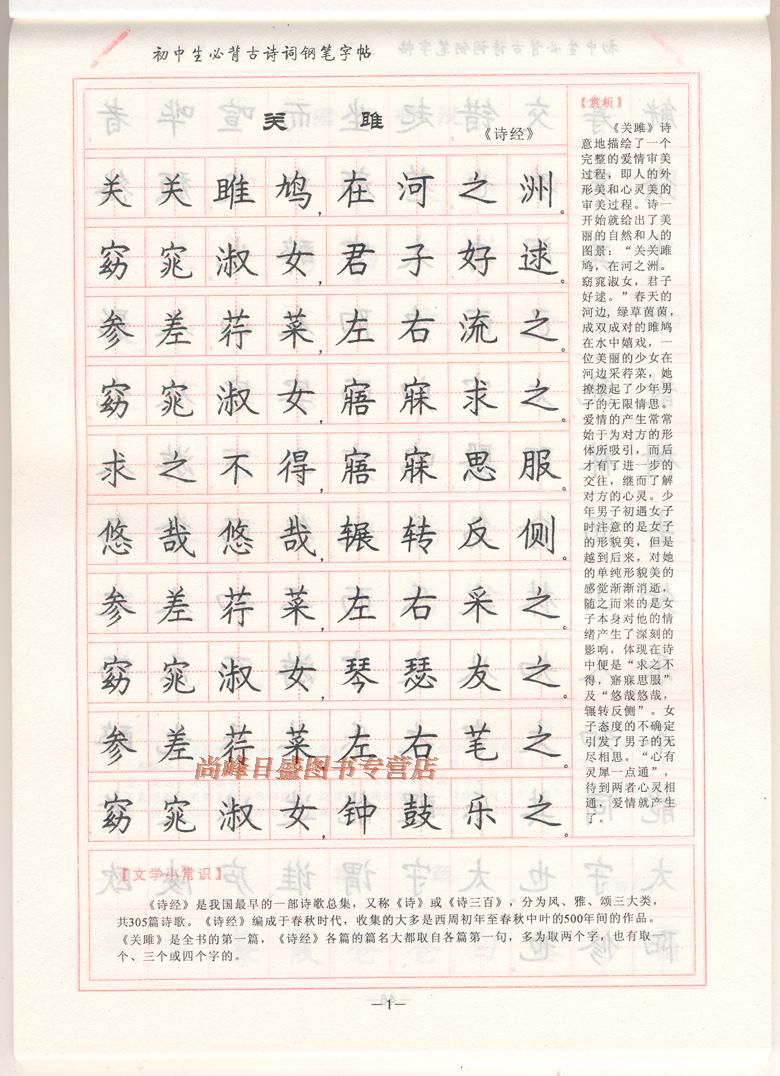 初中生必背古诗词钢笔字帖
关 雎
《诗经》
关关雎鸠，在河之洲。
窈窕淑女，君子好逑。
参差荇菜，左右流之。
窈窕淑女，寤寐求之。
求之不得，寤寐思服。
悠哉悠哉，辗转反侧。
参差荇菜，左右采之。
窈窕淑女，琴瑟友之。
参差荇菜，左右芼之。
窈窕淑女，钟鼓乐之。
【赏析】
《关雎》诗
意地描绘了一个
完整的爱情审美
过程，即人的外
形美和心灵美的
审美过程。诗一
开始就给出了美
丽的自然和人的
图景：“关关雎
鸠，在河之洲。
窈窕淑女，君子
好逑。”春天的
河边，绿草茵茵，
成双成对的雎鸠
在水中嬉戏，一
位美丽的少女在
河边采荇菜，她
撩拨起了少年男
子的无限情思。
爱情的产生常常
始于为对方的形
体所吸引，而后
才有了进一步的
交往，继而了解
对方的心灵。少
年男子初遇女子
时注意的是女子
的形貌美，但是
越到后来，对她
的单纯形貌美的
感觉渐渐消逝，
随之而来的是女
子本身对他的情
绪产生了深刻的
影响，体现在诗
中便是“求之不
得，寤寐思服”
及“悠哉悠哉，
辗转反侧”。女
子态度的不确定
引发了男子的无
尽相思。“心有
灵犀一点通”，
待到两者心灵相
通，爱情就产生
了。
尚峰日盛图书专营店
【文学小常识】
《诗经》是我国最早的一部诗歌总集，又称《诗》或《诗三百》，分为风、雅、颂三大类，
共305篇诗歌。《诗经》编成于春秋时代，收集的大多是西周初年至春秋中叶的500年间的作品。
《关雎》是全书的第一篇，《诗经》各篇的篇名大都取自各篇第一句，多为取两个字，也有取一
个、三个或四个字的。
—1—